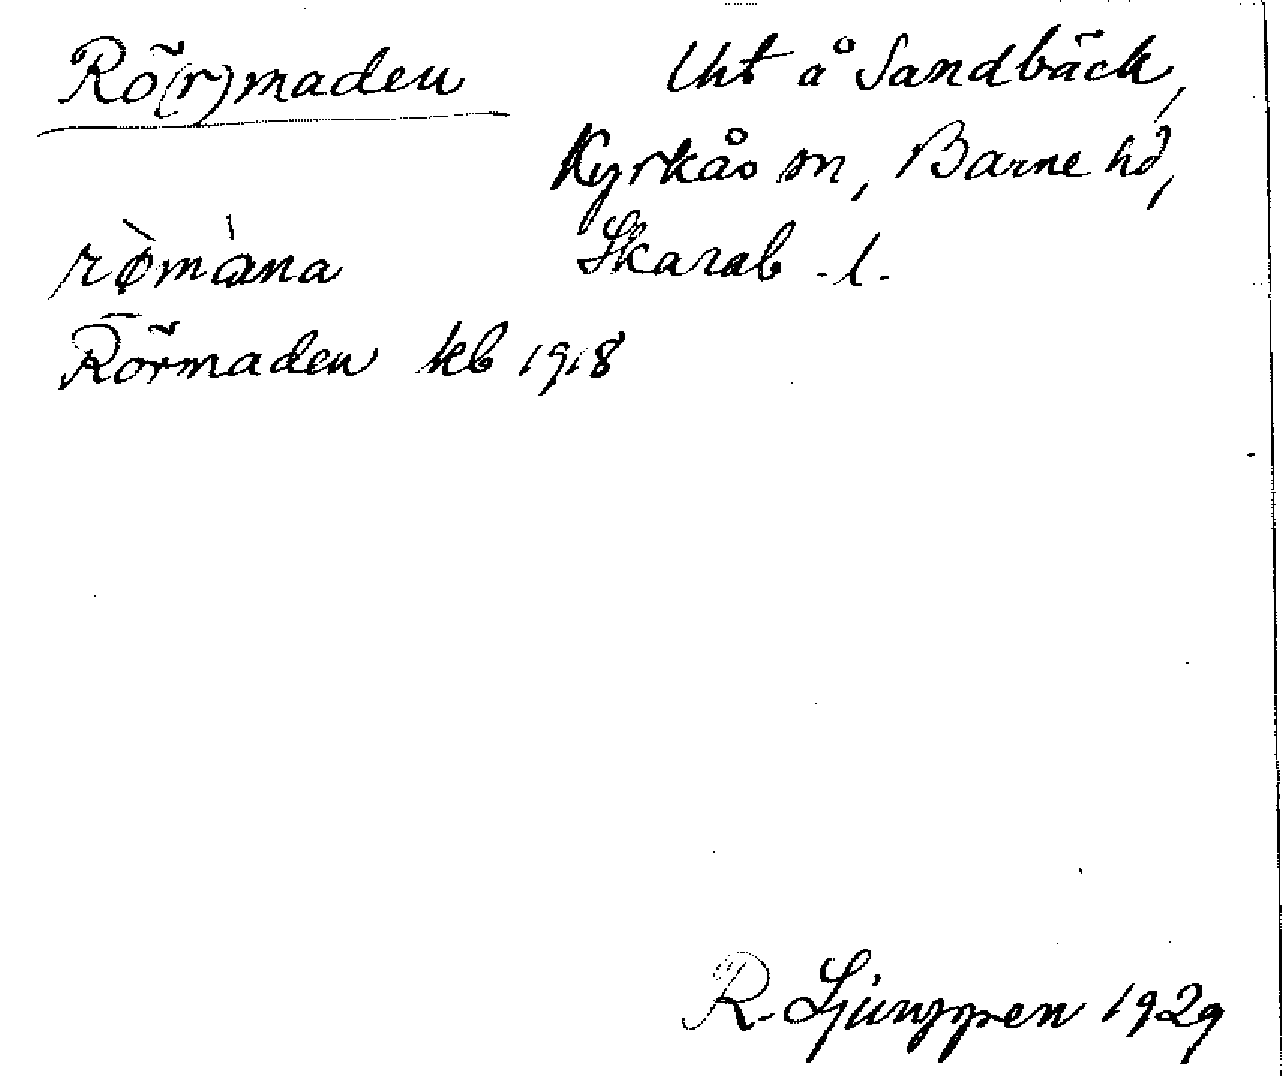 Rö(r)maden
Uht å Sandbäck,
Kyrkås sn, Barne hd,
Skarab. l.
rø̀màna
Rörmaden kb 1918
R. Ljunggren 1929